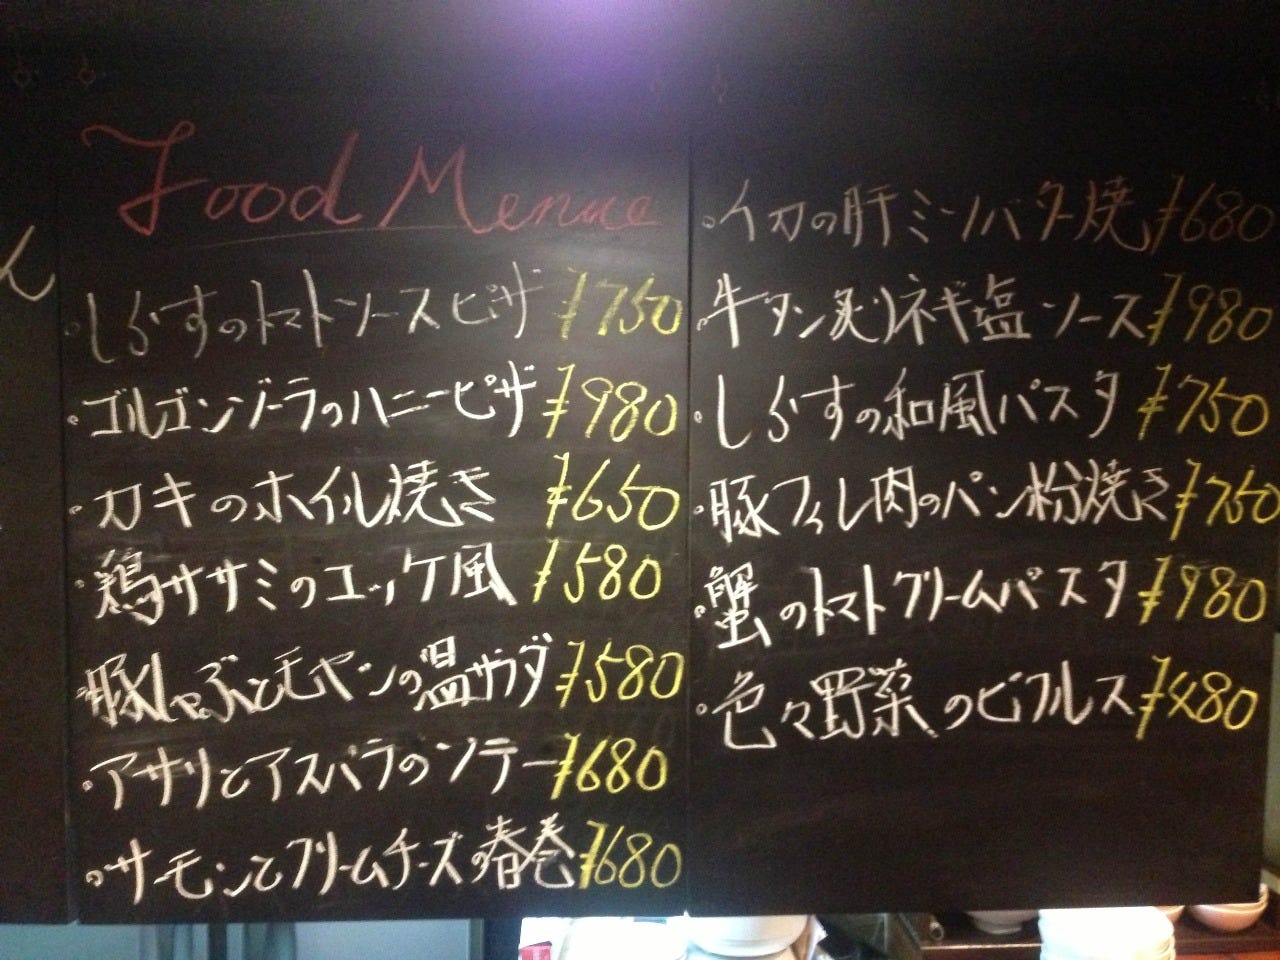 Food Menue
・しらすのトマトソースピザ ¥750
・ゴルゴンゾーラのハニーピザ ¥980
・カキのホイル焼き ¥650
・鶏ササミのユッケ風 ¥580
・豚しゃぶとモヤシの温サラダ ¥580
・アサリとアスパラのソテー ¥680
・サーモンとクリームチーズの春巻 ¥680
・イカの肝ミソバター焼 ¥680
・牛タン炙りネギ塩ソース ¥980
・しらすの和風パスタ ¥750
・豚フィレ肉のパン粉焼き ¥750
・蟹のトマトクリームパスタ ¥980
・色々野菜のピクルス ¥480